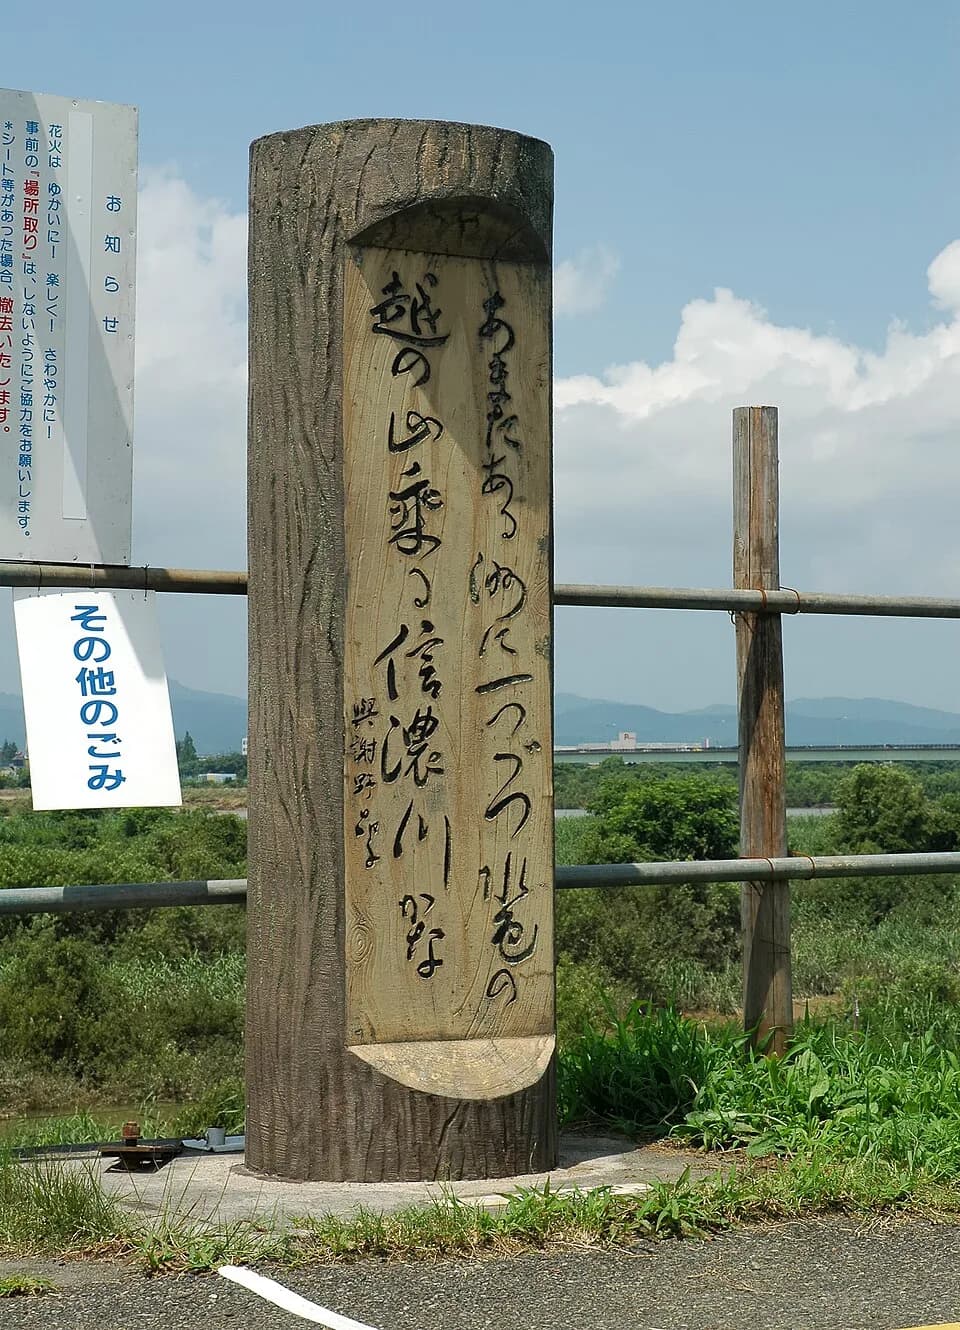 あまたある洲に一つづつ水色の
越の山乗る信濃川かな
與謝野晶子
お知らせ
花火は ゆかいにー 楽しくー さわやかにー
事前の『場所取り』は、しないようにご協力をお願いします。
＊シート等があった場合、撤去いたします。
その他のごみ